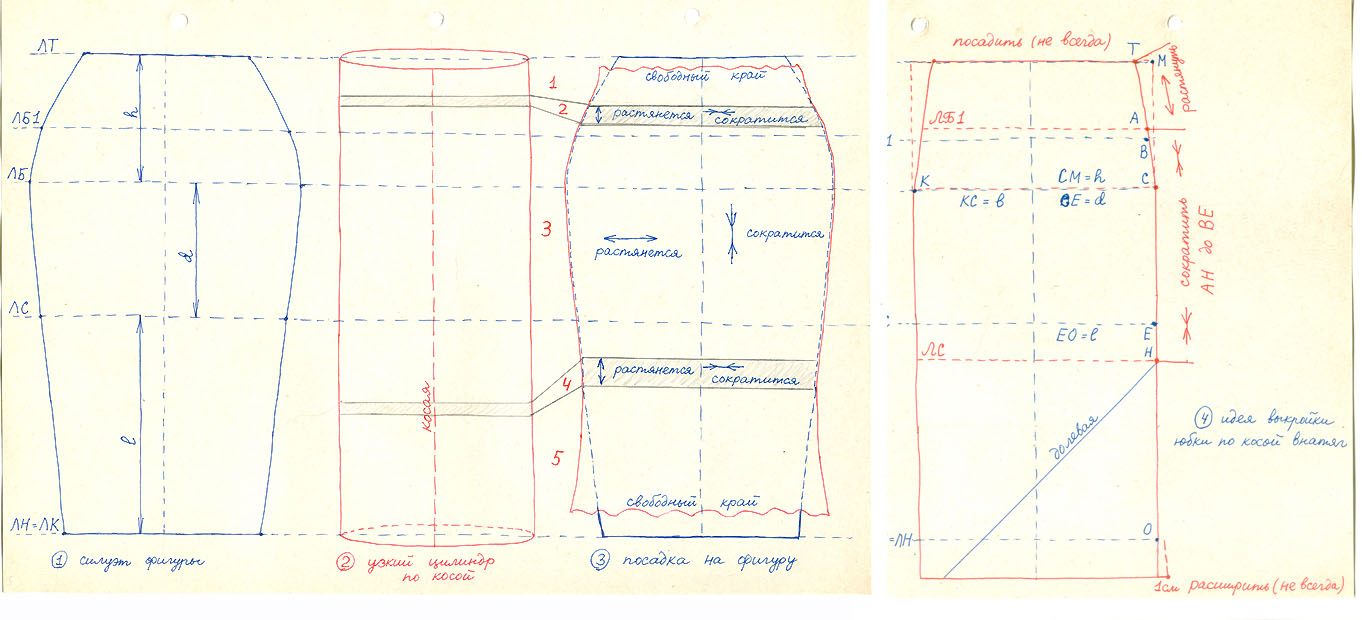 ЛТ
ЛБ1
ЛБ
ЛС
ЛН=ЛК
h
d
l
① силуэт фигуры
косая
② узкий цилиндр
по косой
1
2
3
4
5
свободный край
растянется
сократится
растянется
сократится
растянется
сократится
свободный край
③ посадка на фигуру
посадить (не всегда)
Т
М
растянуть
ЛБ1
А
1
В
К
СМ = h
С
КС = в
СЕ = d
сократить
АН до ВЕ
ЕО = l
Е
ЛС
Н
долевая
④ идея выкройки
юбки по косой внатяг
=ЛН
О
1см расширить (не всегда)